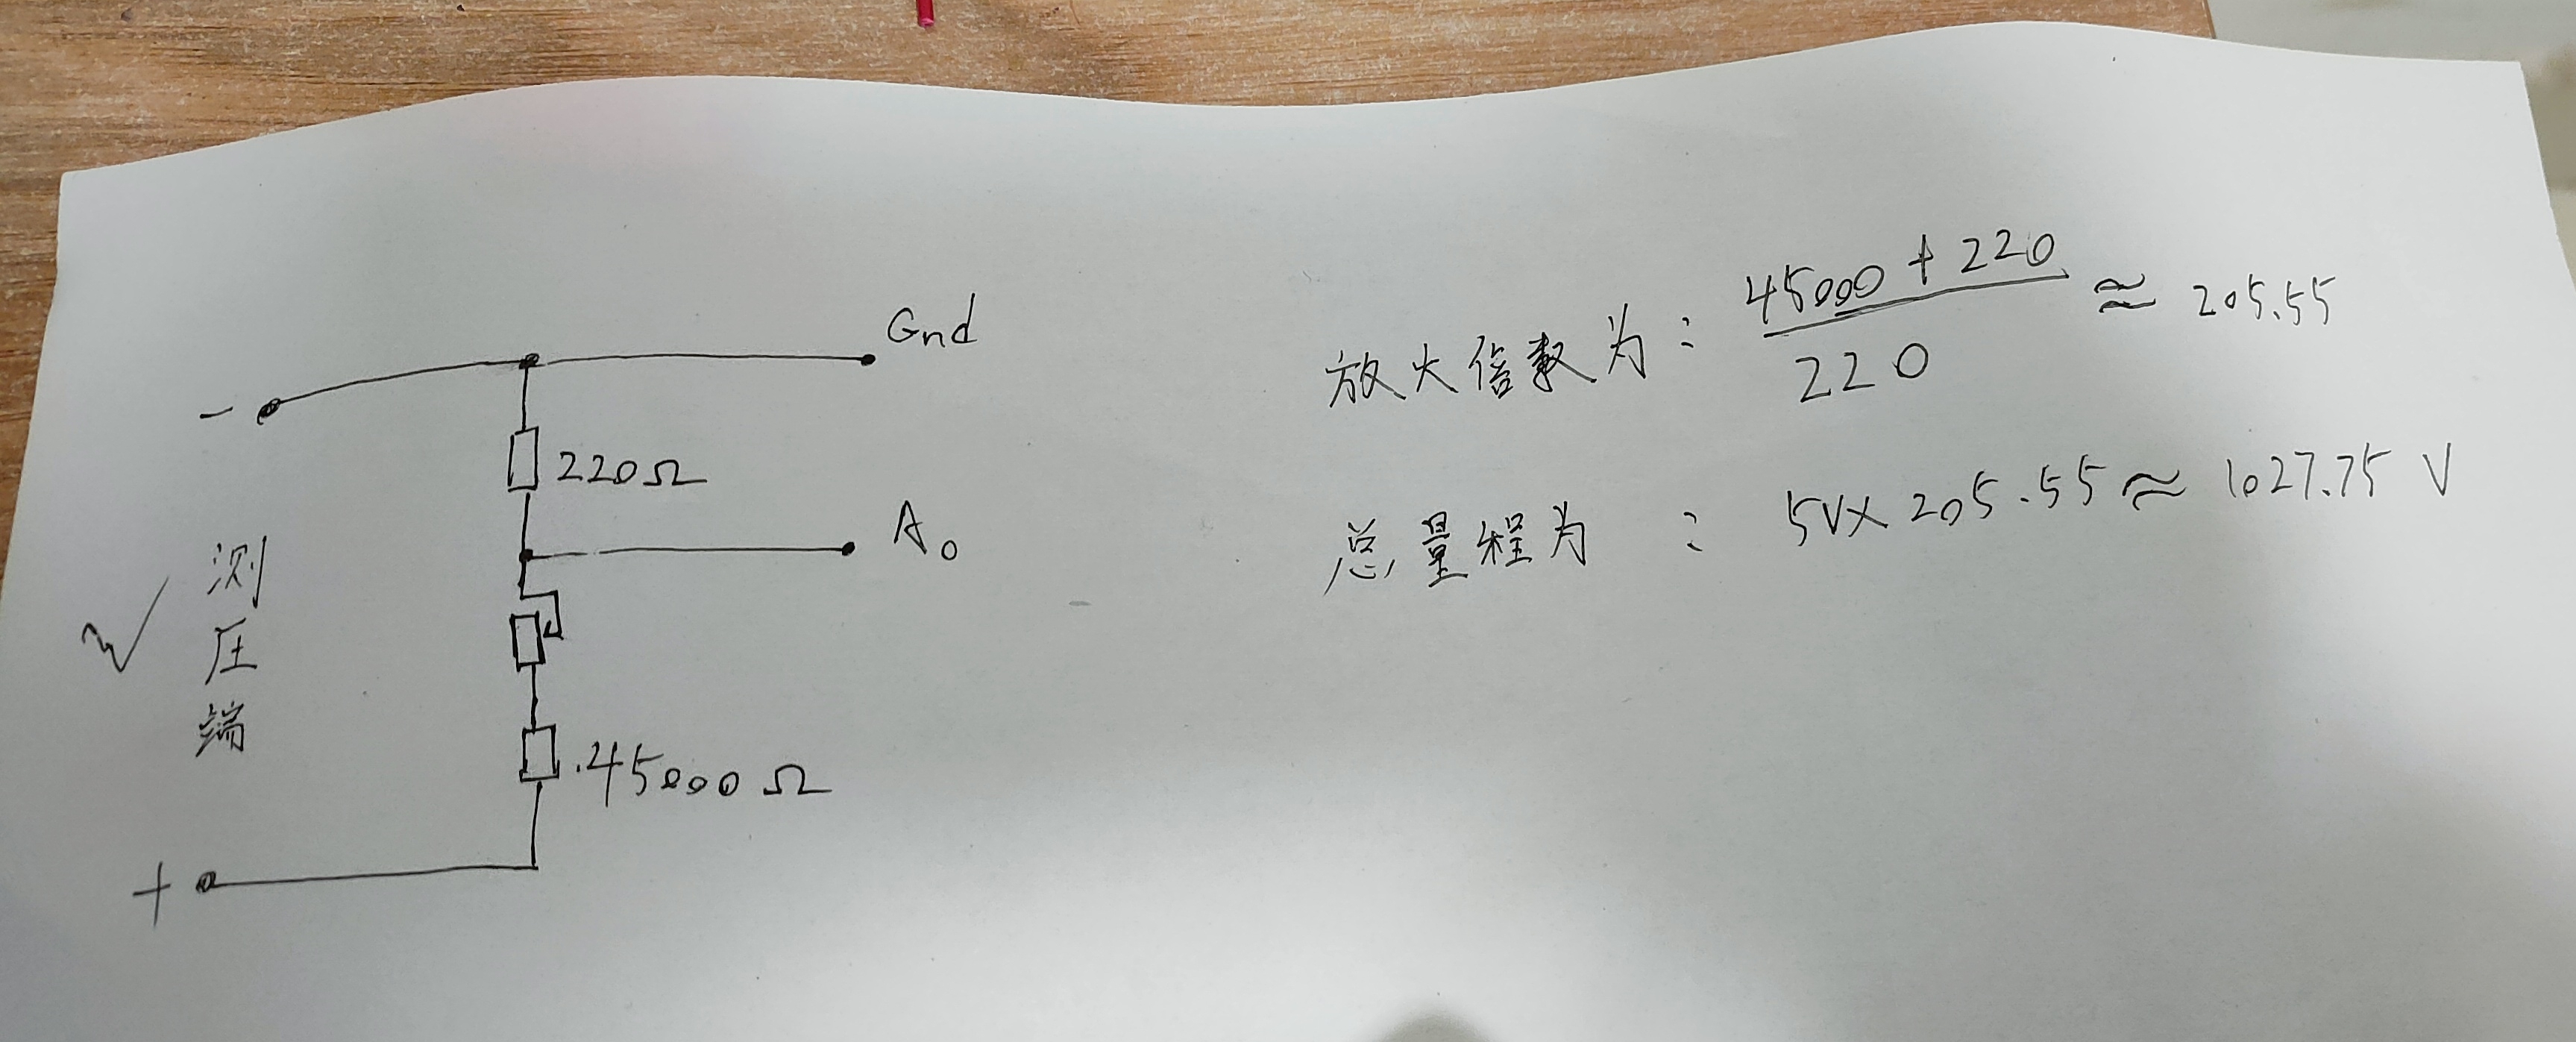 Gnd
-
220Ω
A0
测压端
.45000Ω
+
放大倍数为: 45000+220 / 220 ≈ 205.55
总量程为 : 5V× 205.55 ≈ 1027.75 V